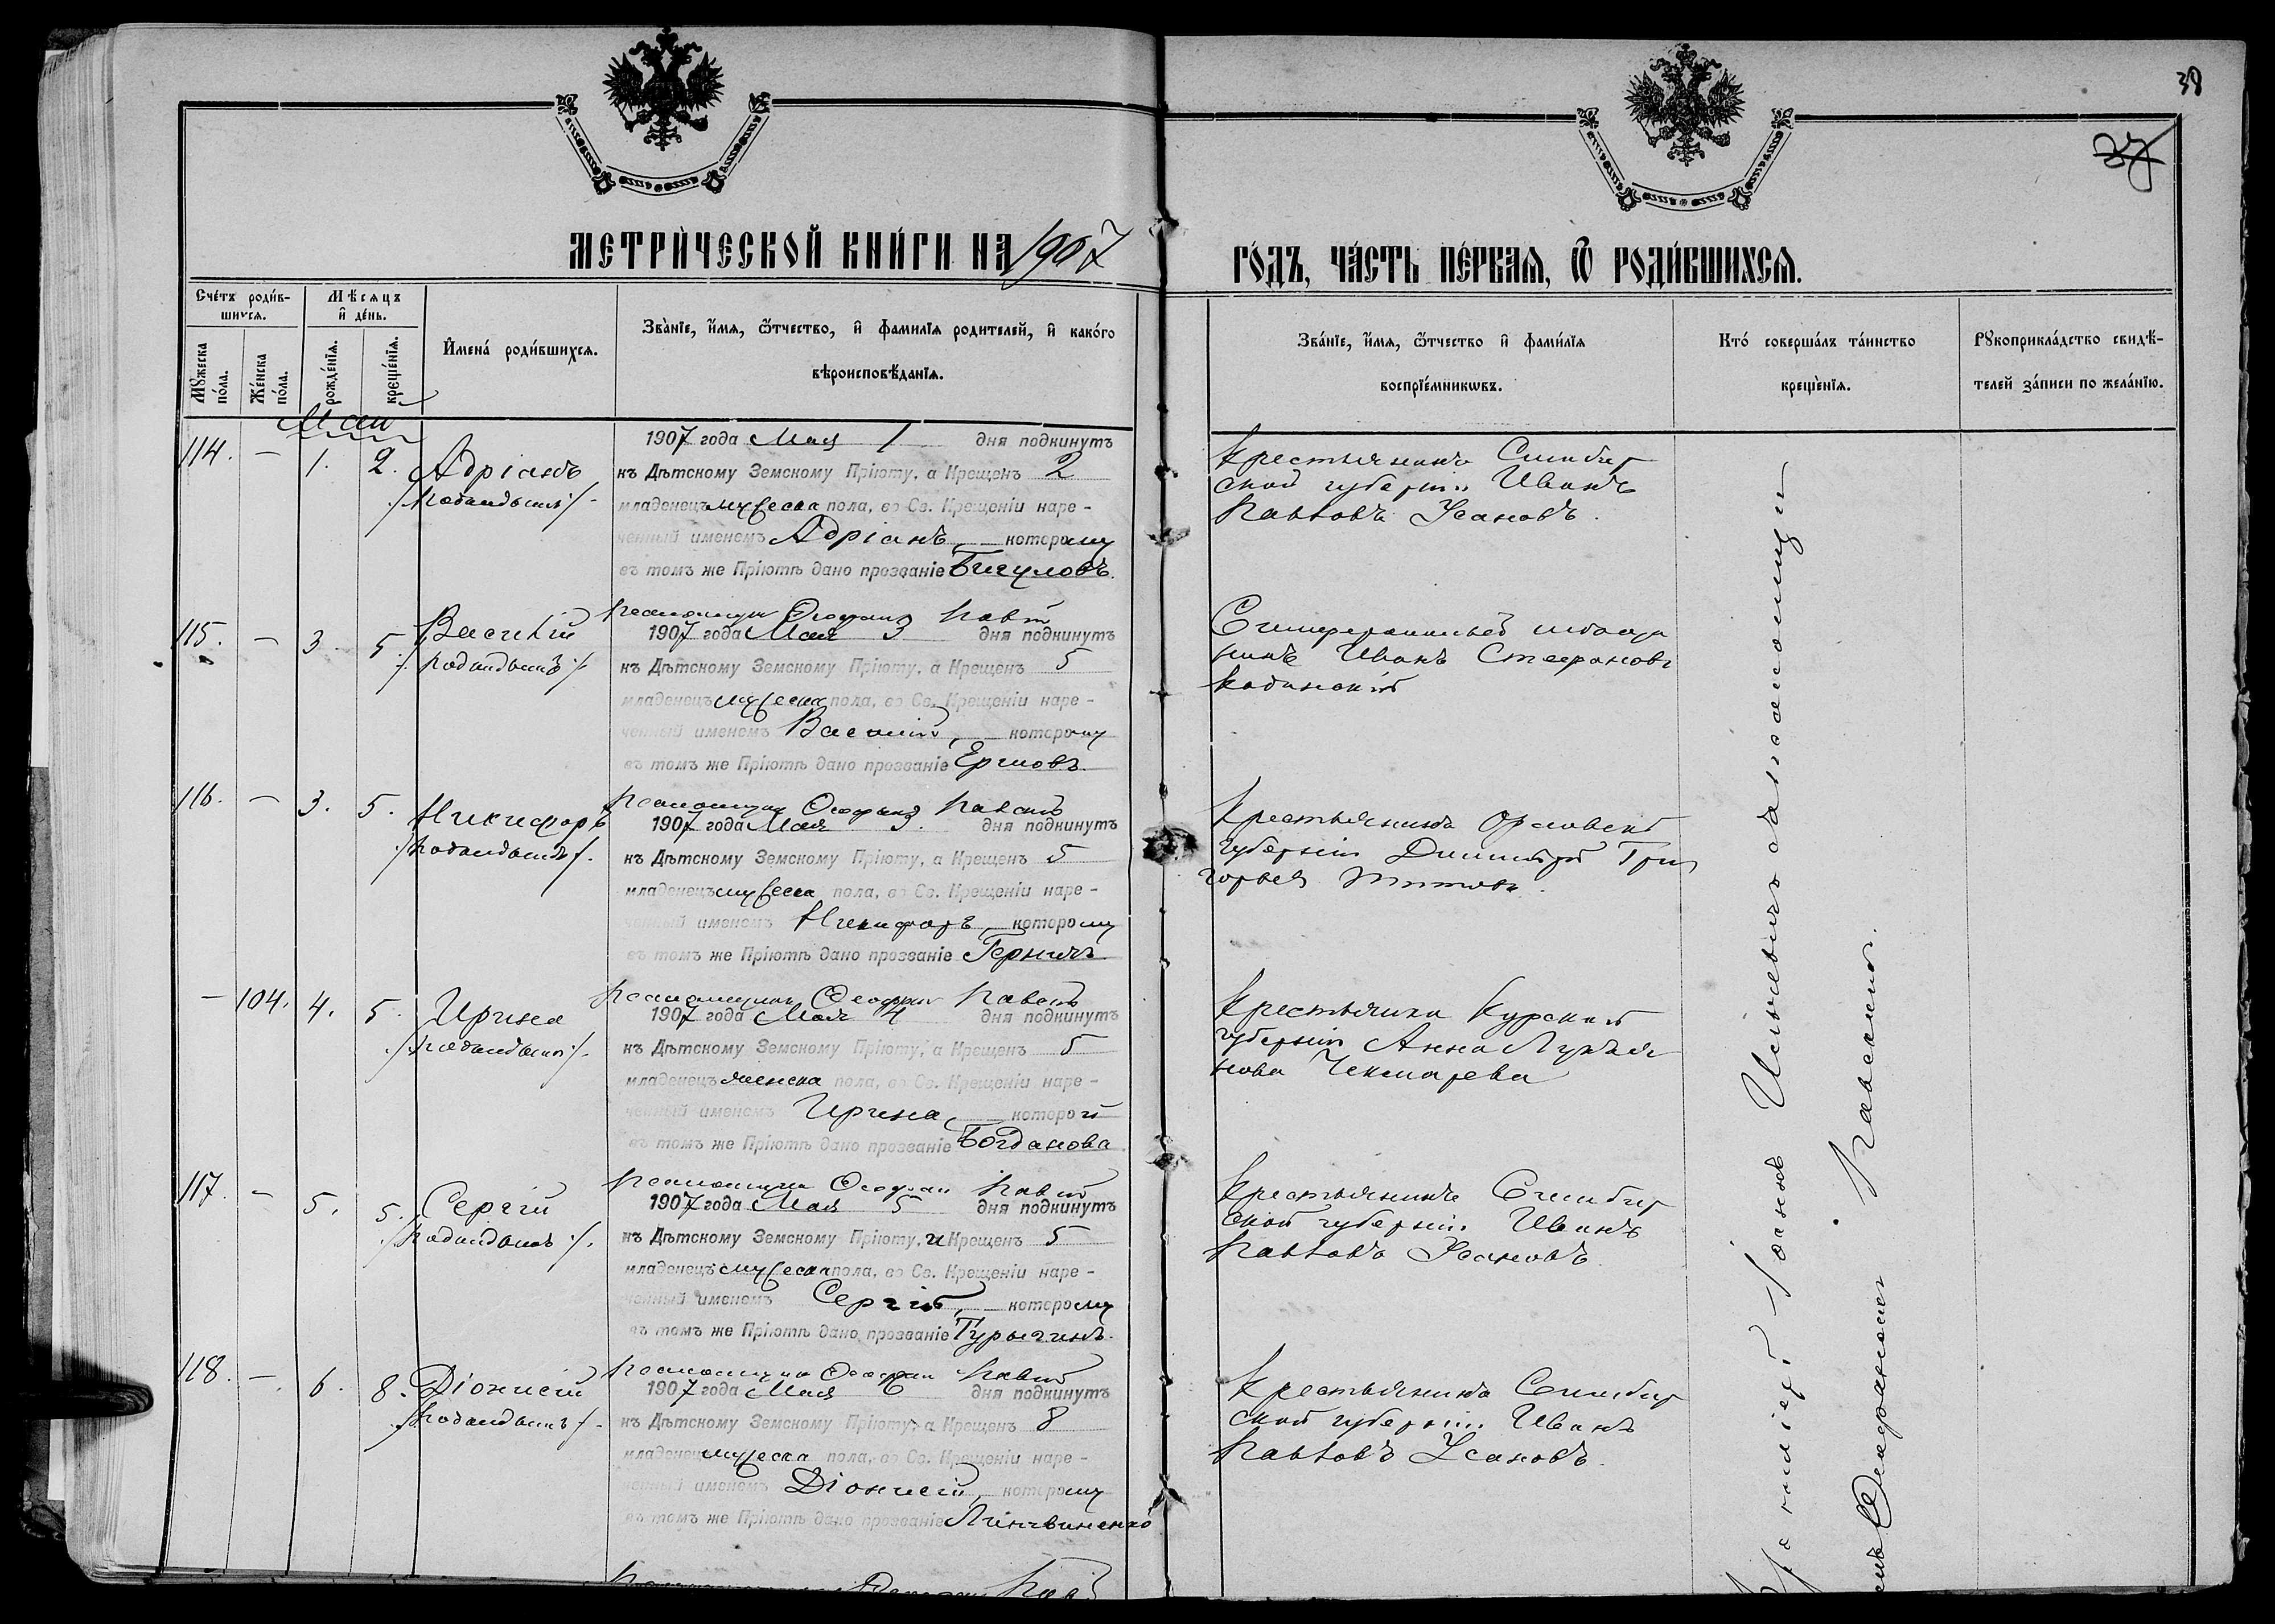 38
37
МЕТРИ́ЧЕСКОЙ КНИ́ГИ НА 1907
ГО́ДЪ, ЧА́СТЬ ПЕ́РВАѦ, Ѿ РОДИ́ВШИХСѦ.
Сче́тъ роди́в-
шихсѧ.
Мѣ́сѧцъ
и҆ де́нь.
Мꙋ́жеска
по́ла.
Же́нска
по́ла.
рожде́нїѧ.
креще́нїѧ.
И҆мена̀ роди́вшихсѧ.
Зва́нїе, и҆́мѧ, ѻ҆́тчество, и҆ фамилїѧ родителей, и҆ како́го
вѣроисповѣ́данїѧ.
Зва́нїе, и҆́мѧ, ѻ҆́тчество и҆ фами́лїѧ
воспрїе́мникѡвъ.
Кто́ соверша́лъ та́инство
креще́нїѧ.
Рꙋкоприкла́дство свидѣ́-
телей за́писи по жела́нїю.
Май
114. — 1. 2. Адріанъ
/подкидышъ/
1907 года Мая 1 дня подкинутъ
къ Дѣтскому Земскому Пріюту, а Крещенъ 2
младенецъ мужеска пола, во Св. Крещеніи наре-
ченный именемъ Адріанъ, которому
въ томъ же Пріютѣ дано прозваніе Бигуловъ.
Крестьянинъ Симбир
ской губерніи Иванъ
Павловъ Усановъ.
Псаломщикъ Ѳеофанъ
115. — 3. 5. Василій
/подкидышъ/
1907 года Мая 3 дня подкинутъ
къ Дѣтскому Земскому Пріюту, а Крещенъ 5
младенецъ мужеска пола, во Св. Крещеніи наре-
ченный именемъ Василій, которому
въ томъ же Пріютѣ дано прозваніе Ергиовъ.
Симферопольскій мѣща
нинъ Иванъ Стефановъ
Псаломщикъ Ѳеофанъ
116. — 3. 5. Никифоръ
/подкидышъ/.
1907 года Мая 3. дня подкинутъ
къ Дѣтскому Земскому Пріюту, а Крещенъ 5
младенецъ мужеска пола, во Св. Крещеніи наре-
ченный именемъ Никифоръ, которому
въ томъ же Пріютѣ дано прозваніе
Крестьянинъ Орловской
губерніи Димитрій Гри
горьевъ Титовъ.
Псаломщикъ Ѳеофанъ
— 104. 4. 5. Ирина
/подкидышъ/.
1907 года Мая 4 дня подкинутъ
къ Дѣтскому Земскому Пріюту, а Крещенъ 5
младенецъ женска пола, во Св. Крещеніи наре-
ченный именемъ Ирина, которой
въ томъ же Пріютѣ дано прозваніе Богданова
Крестьянка Курской
губерніи Анна Лукья
нова Чекмарева
Псаломщикъ Ѳеофанъ
117. — 5. 5. Сергій
/подкидышъ/.
1907 года Мая 5 дня подкинутъ
къ Дѣтскому Земскому Пріюту, и Крещенъ 5
младенецъ мужеска пола, во Св. Крещеніи наре-
ченный именемъ Сергій, которому
въ томъ же Пріютѣ дано прозваніе Турыгинъ.
Крестьянинъ Симбир
ской губерніи Иванъ
Павловъ Усановъ
Псаломщикъ Ѳеофанъ
118. — 6. 8. Діонисій
/подкидышъ/.
1907 года Мая 6 дня подкинутъ
къ Дѣтскому Земскому Пріюту, а Крещенъ 8
младенецъ мужеска пола, во Св. Крещеніи наре-
ченный именемъ Діонисій, которому
въ томъ же Пріютѣ дано прозваніе
Крестьянинъ Симбир
ской губерніи Иванъ
Павловъ Усановъ.